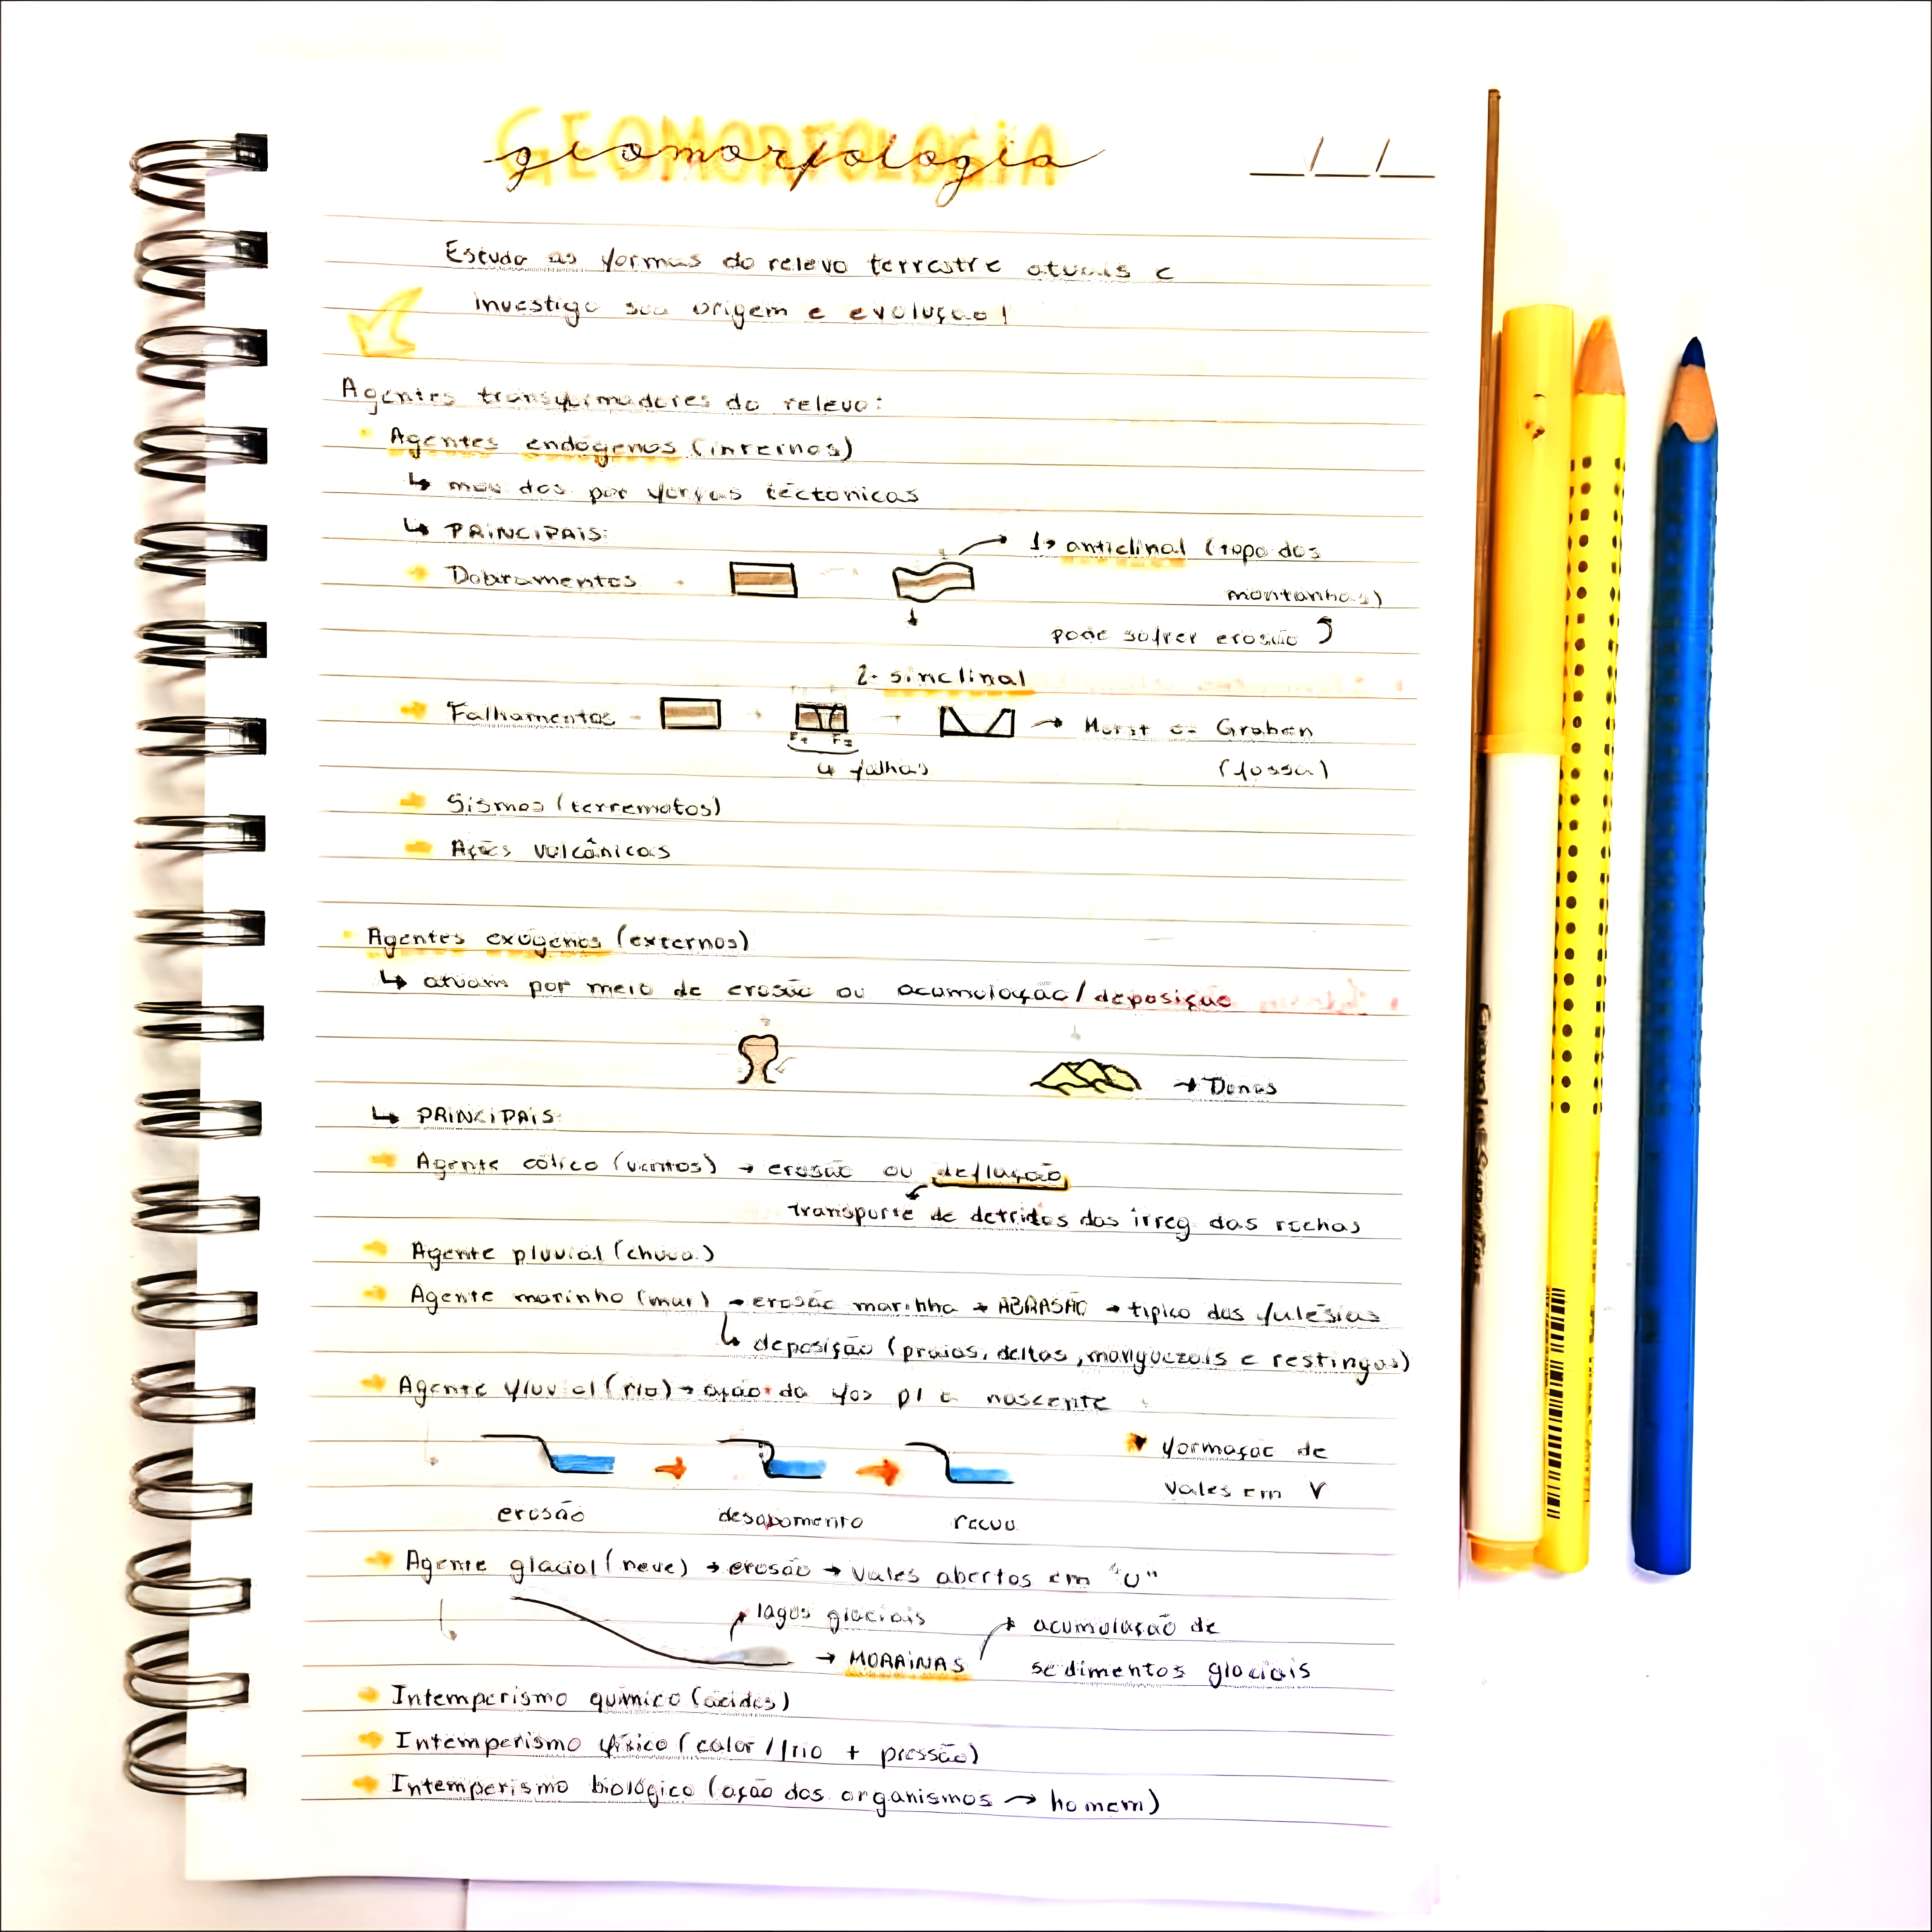 GEOMORFOLOGIA
geomorfologia
__/__/__
Estuda as formas do relevo terrestre atuais e
investiga sua origem e evolução!
Agentes transformadores do relevo:
Agentes endógenos (internos)
↳ movidos por forças tectonicas
↳ PRINCIPAIS:
1→ anticlinal (topo das
Dobramentos
montanhas)
pode sofrer erosão
2- sinclinal
Falhamentos - → → → Horst e Graben
F1 F2
↳ falhas (fossa)
Sismos (terremotos)
Ações vulcânicas
Agentes exógenos (externos)
↳ atuam por meio de erosão ou acumulação/deposição
→ Dunas
↳ PRINCIPAIS:
Agente eólico (ventos) → erosão ou deflação
transporte de detritos das irreg. das rochas
Agente pluvial (chuva)
Agente marinho (mar) → erosão marinha → ABRASÃO → típico das falésias
↳ deposição (praias, deltas, manguezais e restingas)
Agente fluvial (rio) → ação da foz p/ a nascente
formação de
vales em V
erosão desabamento recuo
Agente glacial (neve) → erosão → vales abertos em "U"
lagos glaciais acumulação de
→ MORAINAS sedimentos glaciais
Intemperismo químico (ácidos)
Intemperismo físico (calor/frio + pressão)
Intemperismo biológico (ação dos organismos → homem)